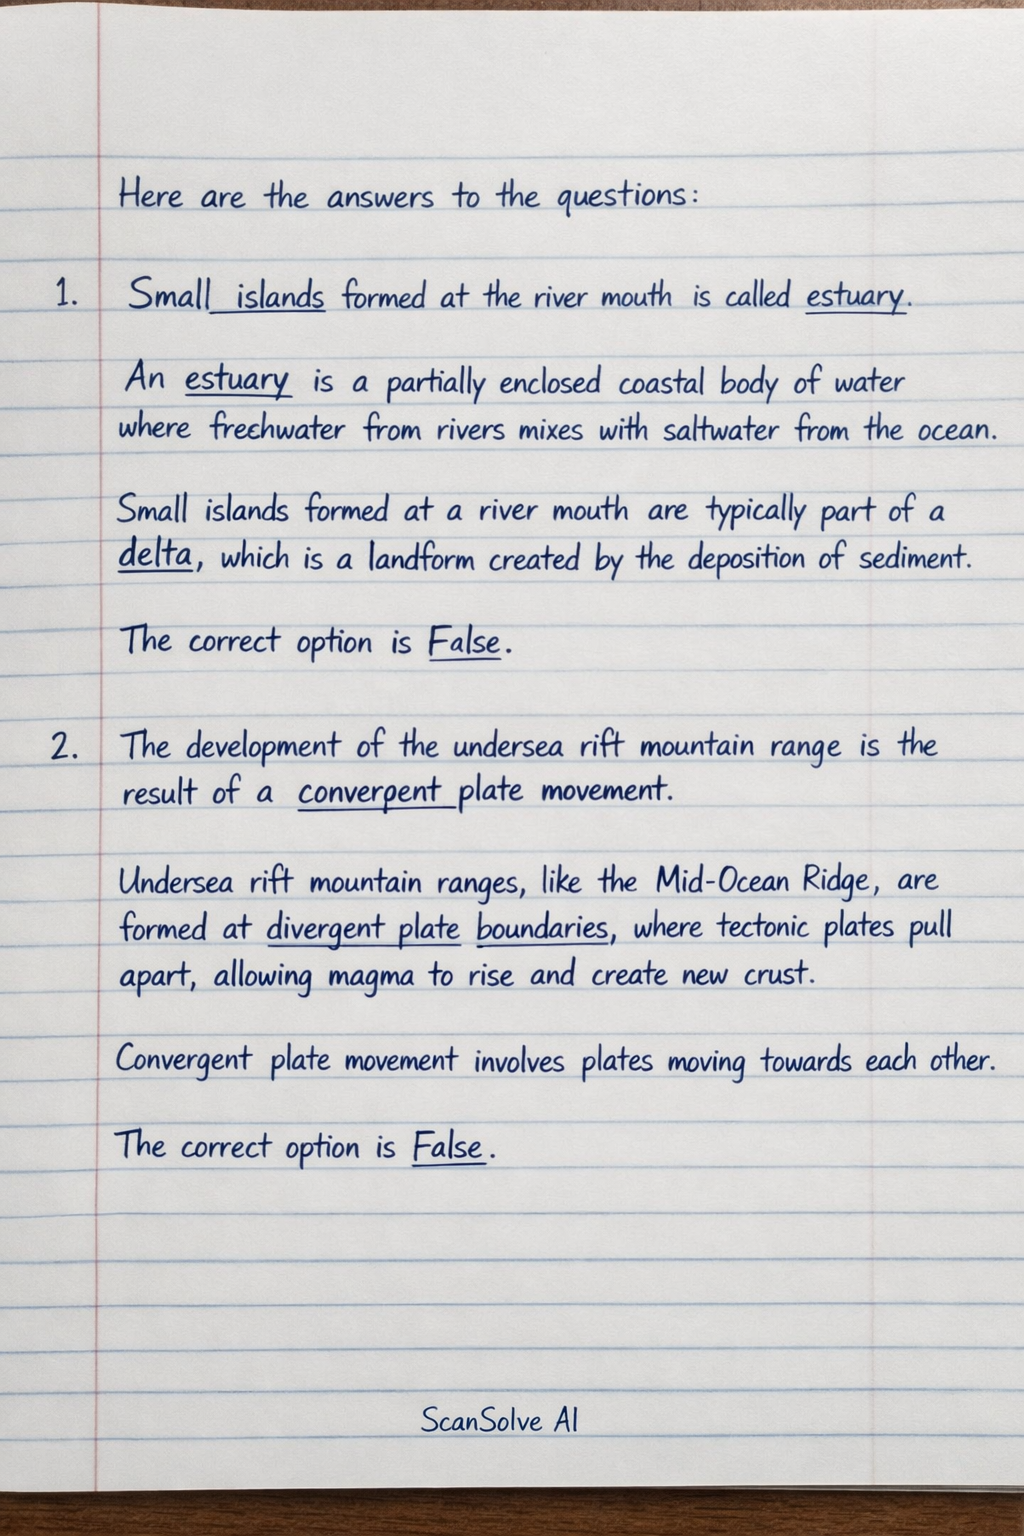 Here are the answers to the questions:
1. Small islands formed at the river mouth is called estuary.
An estuary is a partially enclosed coastal body of water
where frechwater from rivers mixes with saltwater from the ocean.
Small islands formed at a river mouth are typically part of a
delta, which is a landform created by the deposition of sediment.
The correct option is False.
2. The development of the undersea rift mountain range is the
result of a converpent plate movement.
Undersea rift mountain ranges, like the Mid-Ocean Ridge, are
formed at divergent plate boundaries, where tectonic plates pull
apart, allowing magma to rise and create new crust.
Convergent plate movement involves plates moving towards each other.
The correct option is False.
ScanSolve AI